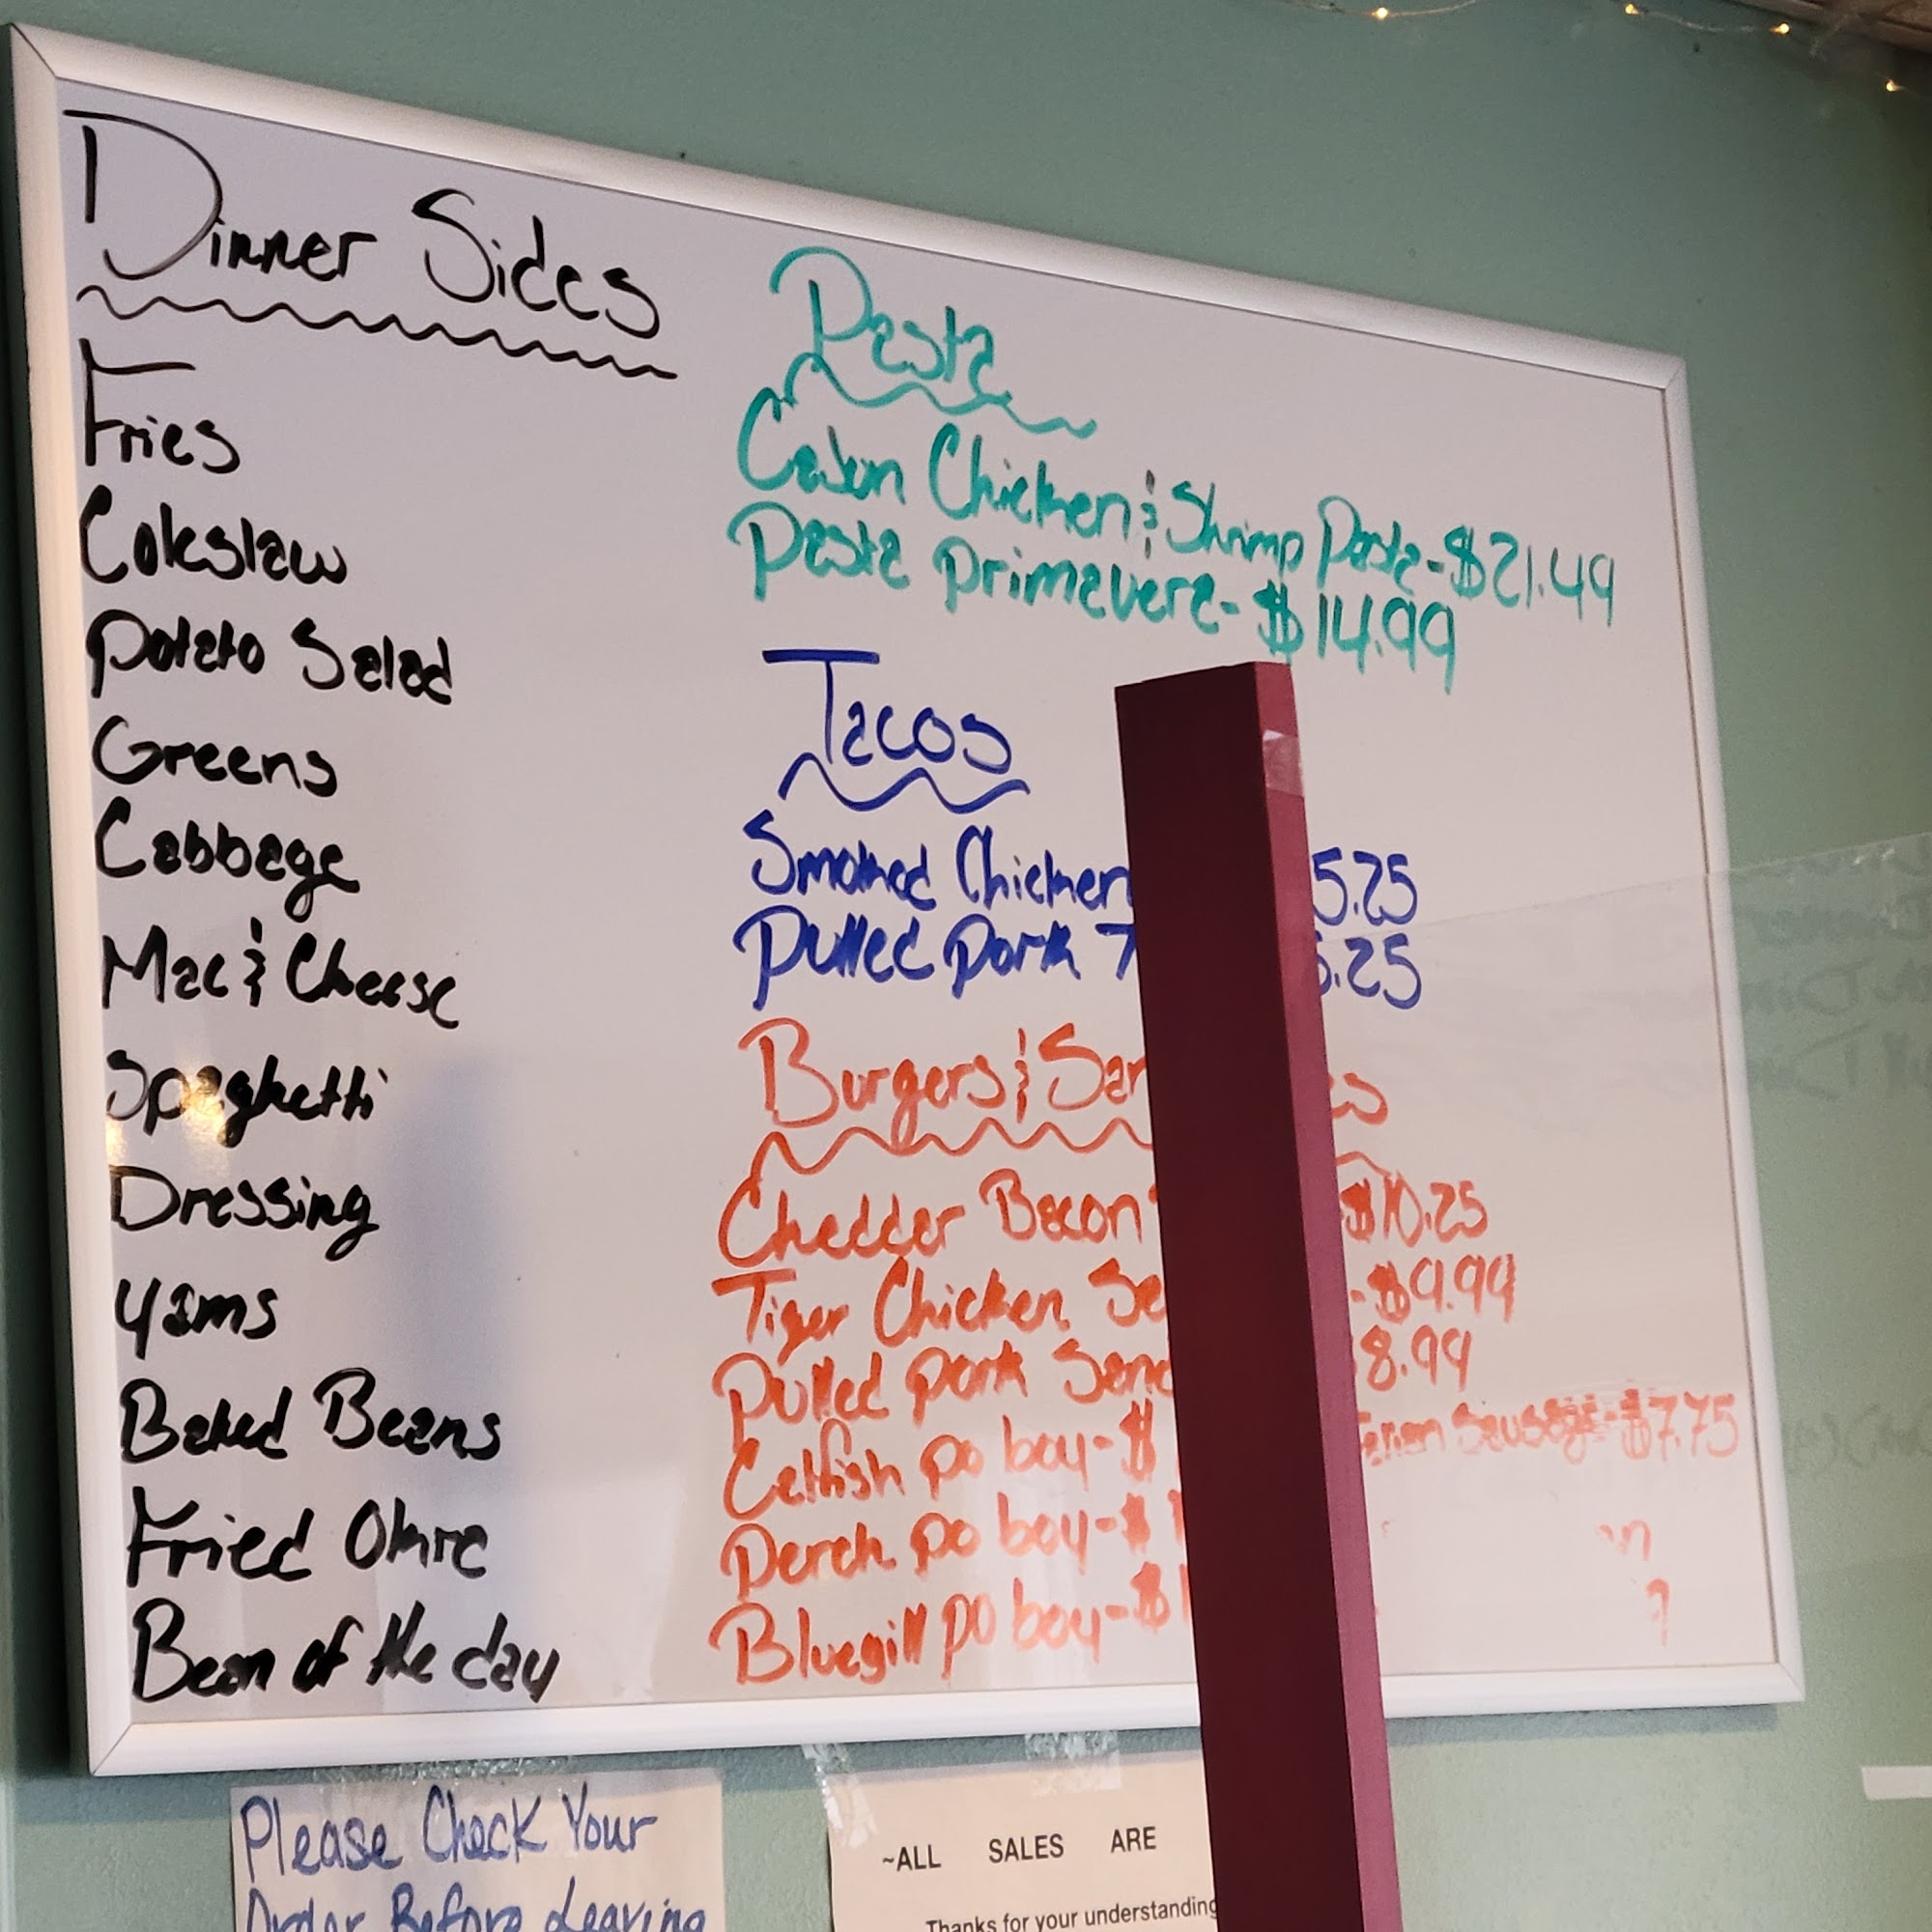 Dinner Sides
Fries
Coleslaw
Potato Salad
Greens
Cabbage
Mac & Cheese
Spaghetti
Dressing
Yams
Baked Beans
Fried Okra
Bean of the day
Pasta
Cajun Chicken & Shrimp Pasta-$21.49
Pasta primavera-$14.99
Tacos
Smoked Chicken 5.25
Pulled pork 5.25
Burgers &
Cheddar Bacon $10.25
Tiger Chicken -$9.99
Pulled pork 8.99
Catfish po boy-$ Sausage-$7.75
Perch po boy-$
Bluegill po boy-$
Please Check Your
Order Before Leaving
~ALL SALES ARE
Thanks for your understanding